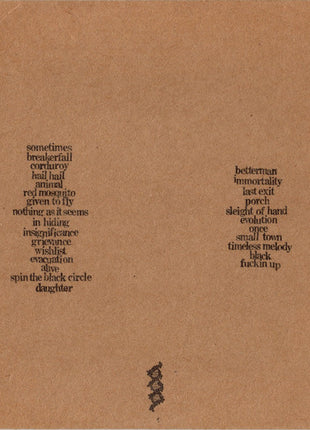 sometimes
breakerfall
corduroy
hail hail
animal
red mosquito
given to fly
nothing as it seems
in hiding
insignificance
grievance
wishlist
evacuation
alive
spin the black circle
daughter
betterman
immortality
last exit
porch
sleight of hand
evolution
once
small town
timeless melody
black
fuckin up